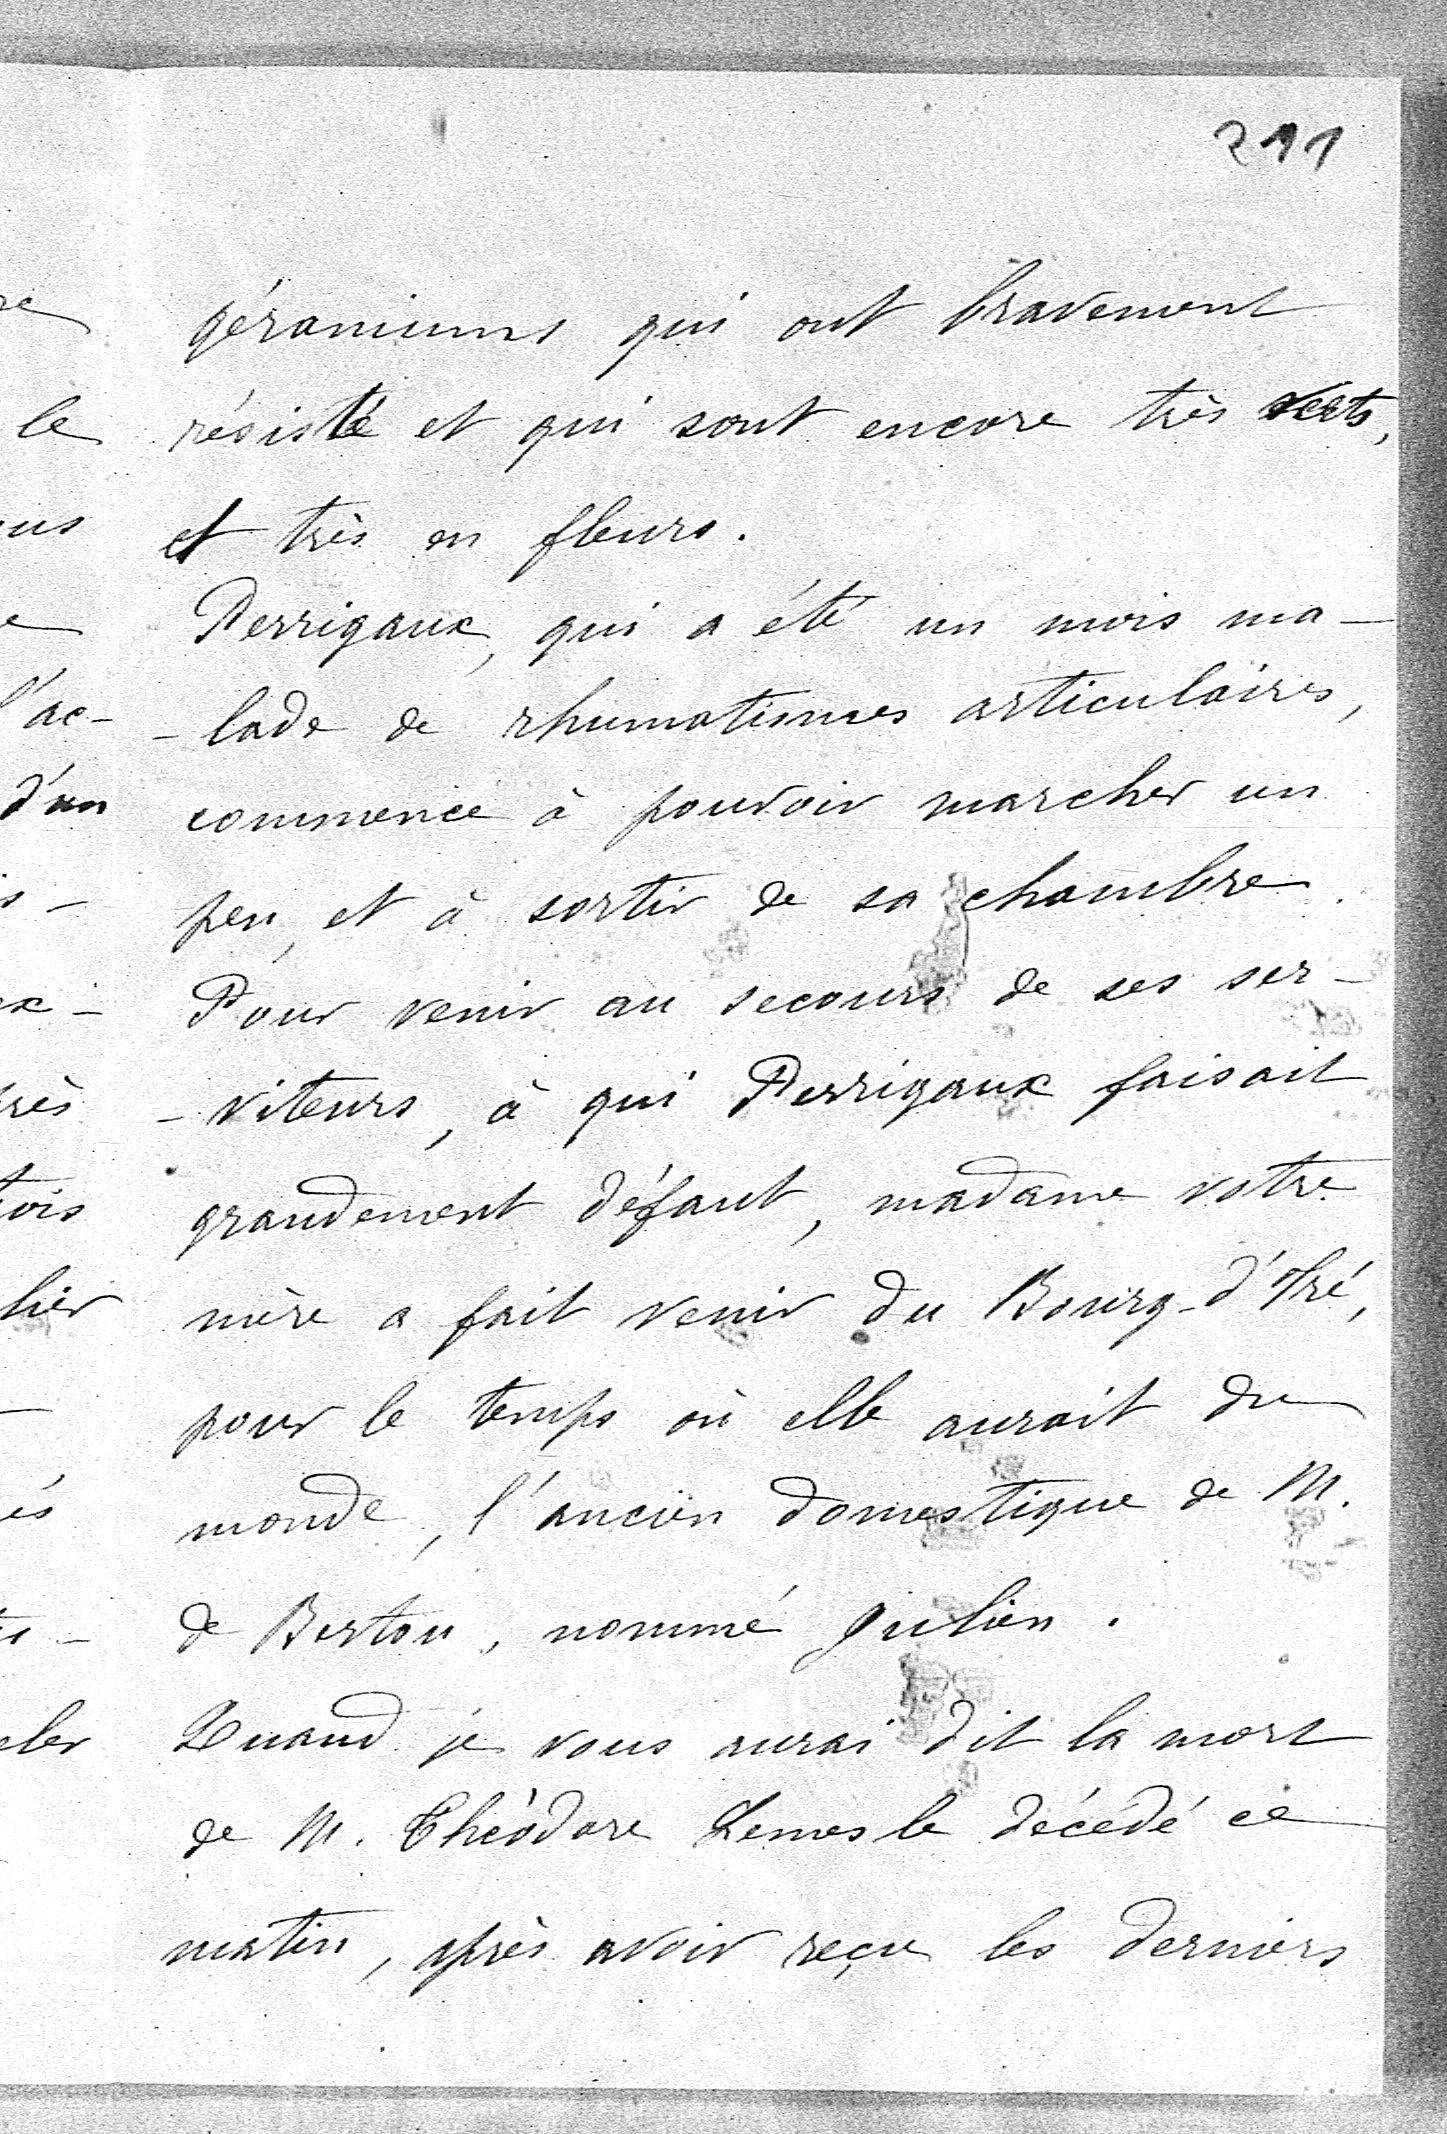 211
géraniums qui ont bravement
résisté et qui sont encore très verts,
et très en fleurs.
Perrigaux, qui a été un mois ma-
-lade de rhumatismes articulaires,
commence à pouvoir marcher un
peu, et à sortir de sa chambre.
Pour venir au secours de ses ser-
-viteurs, à qui Perrigaux faisait
grandement défaut, madame votre
mère a fait venir du Bourg-d'Iré,
pour le temps où elle aurait du
monde, l'ancien domestique de M.
de Bertou, nommé Julien.
Quand je vous aurai dit la mort
de M. Théodore Lemesle décédé ce
matin, après avoir reçu les derniers